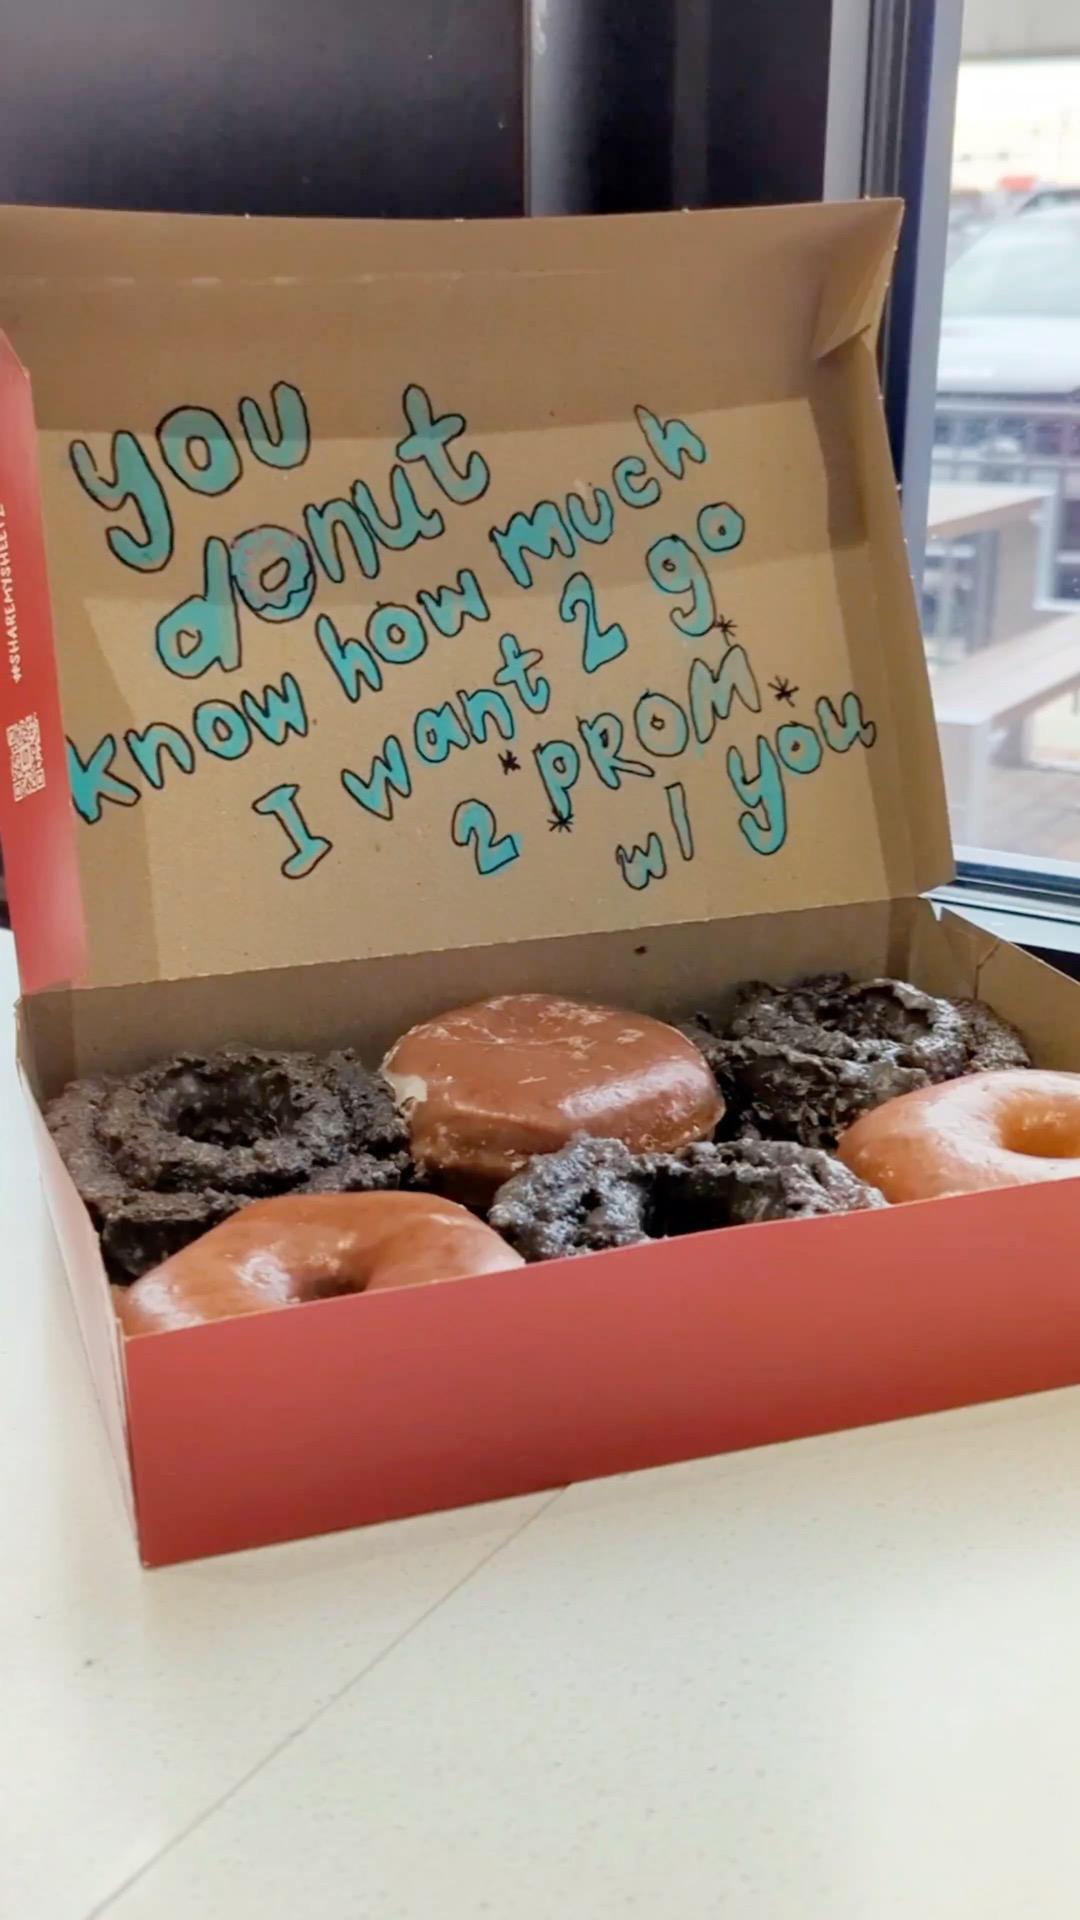 you
donut
know how much
I want 2 go
2 *PROM*
w/ you
#SHAREMYSHEETZ